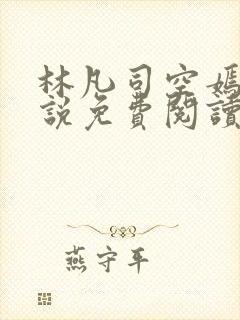 林凡司空嫣
說免費閱讀
燕守平